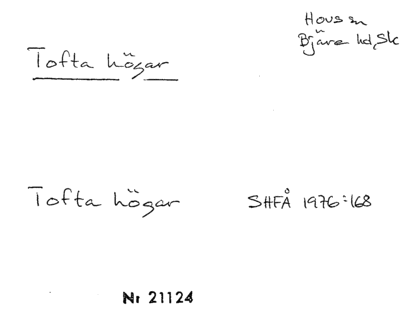 Hovs sn
Bjäre hd, Sk
Tofta högar
Tofta högar SHFÅ 1976:168
Nr 21124